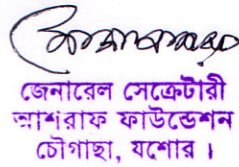 জেনারেল সেক্রেটারী
আশরাফ ফাউন্ডেশন
চৌগাছা, যশোর।